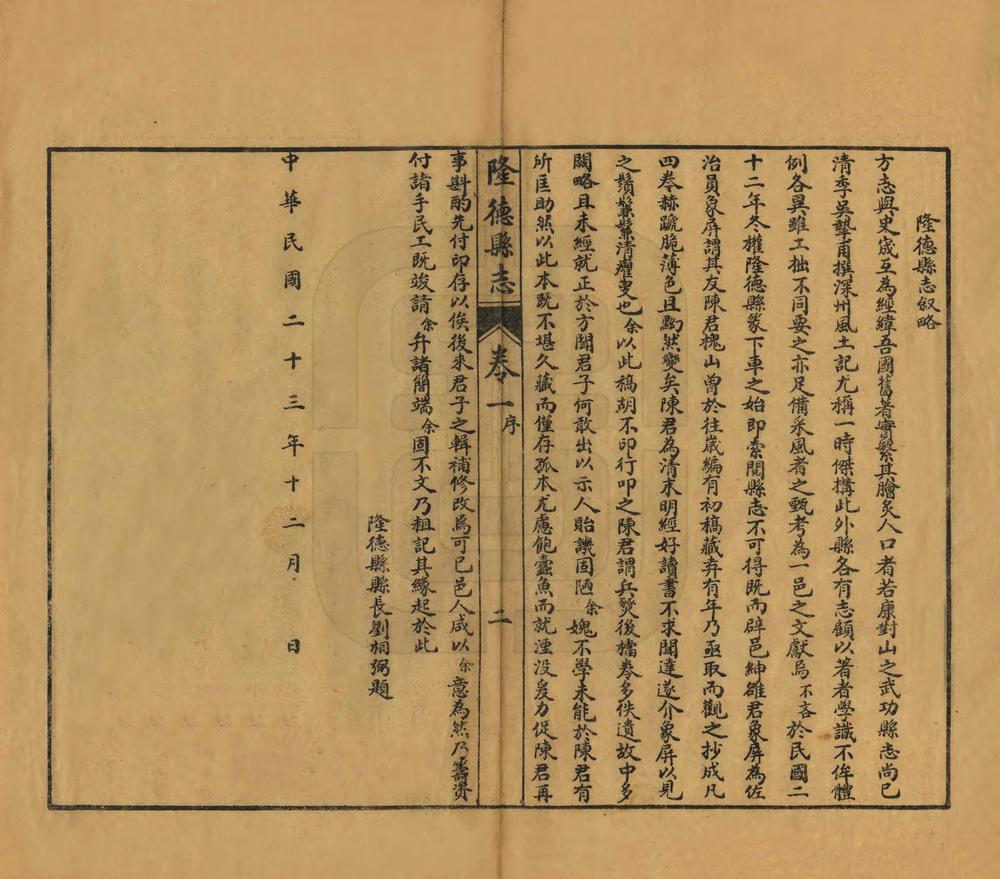 隆德縣志叙略
方志與史宬互為經緯吾國舊著實繁其膾炙人口者若康對山之武功縣志尚已
清季吳摯甫撰深州風土記尤稱一時傑構此外縣各有志顧以著者學識不侔體
例各異雖工拙不同要之亦足備采風者之甄考為一邑之文獻焉不吝於民國二
十二年冬權隆德縣篆下車之始即索閱縣志不可得既而辟邑紳雒君象屏為佐
治員象屏謂其友陳君槐山曾於往歲編有初稿藏弆有年乃亟取而觀之抄成凡
四卷赫蹏脆薄色且黝然變矣陳君為清末明經好讀書不求聞達遂介象屏以見
之鬚鬢鬖鬖清癯叟也余以此稿胡不印行叩之陳君謂兵燹後檔卷多佚遺故中多
闕略且未經就正於方聞君子何敢出以示人貽譏固陋余媿不學未能於陳君有
所匡助然以此本既不堪久藏而僅存孤本尤慮飽蠹魚而就湮没爰力促陳君再
隆德縣志 卷一 序 二
事斟酌先付印存以俟後來君子之輯補修改焉可已邑人咸以余意為然乃籌資
付諸手民工既竣請余弁諸簡端余固不文乃粗記其緣起於此
隆德縣縣長劉桐弼題
中華民國二十三年十二月 日